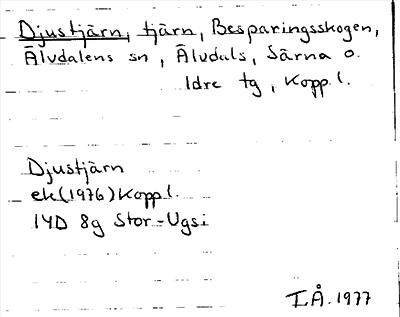 Djustjärn, tjärn, Besparingsskogen,
Älvdalens sn, Älvdals, Särna o.
Idre tg, Kopp. l.
Djustjärn
ek (1976) Kopp l.
14D 8g Stor-Ugsi
I.Å. 1977